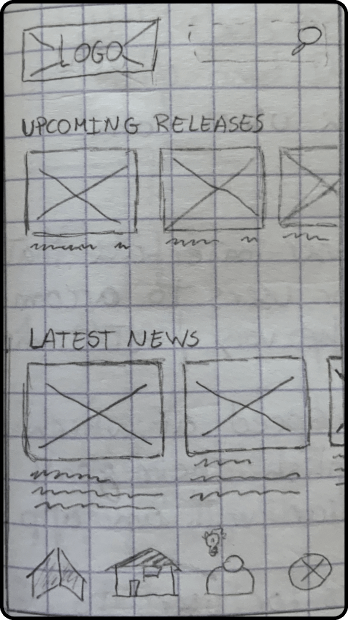 LOGO
UPCOMING RELEASES
LATEST NEWS